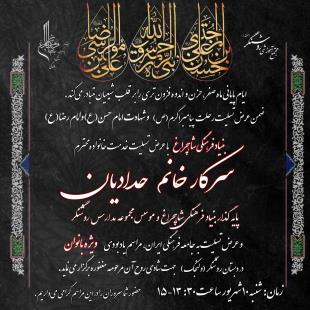 ایام پایانی ماه صفر، حزن و اندوه فزون تری را بر قلب شیعیان بنیاد می‌کند.
ضمن عرض تسلیت رحلت پیامبر اکرم (ص) و شهادت امام حسن (ع) و امام رضا (ع)
بنیاد فرهنگی شاهچراغ با عرض تسلیت خدمت خانواده محترم
سرکار خانم حدادیان
پایه گذار بنیاد فرهنگی شاهچراغ و موسس مجموعه مدارس روشنگر
و عرض تسلیت به جامعه فرهنگی ایران، مراسم یادبودی ویژه بانوان
در دبستان روشنگر جهت شادی روح آن مرحومه مغفوره برگزار می نماید.
زمان: شنبه ۱۰ شهریور ساعت ۱۳:۳۰ - ۱۵
حضور شما سروران را در این مراسم گرامی می داریم.